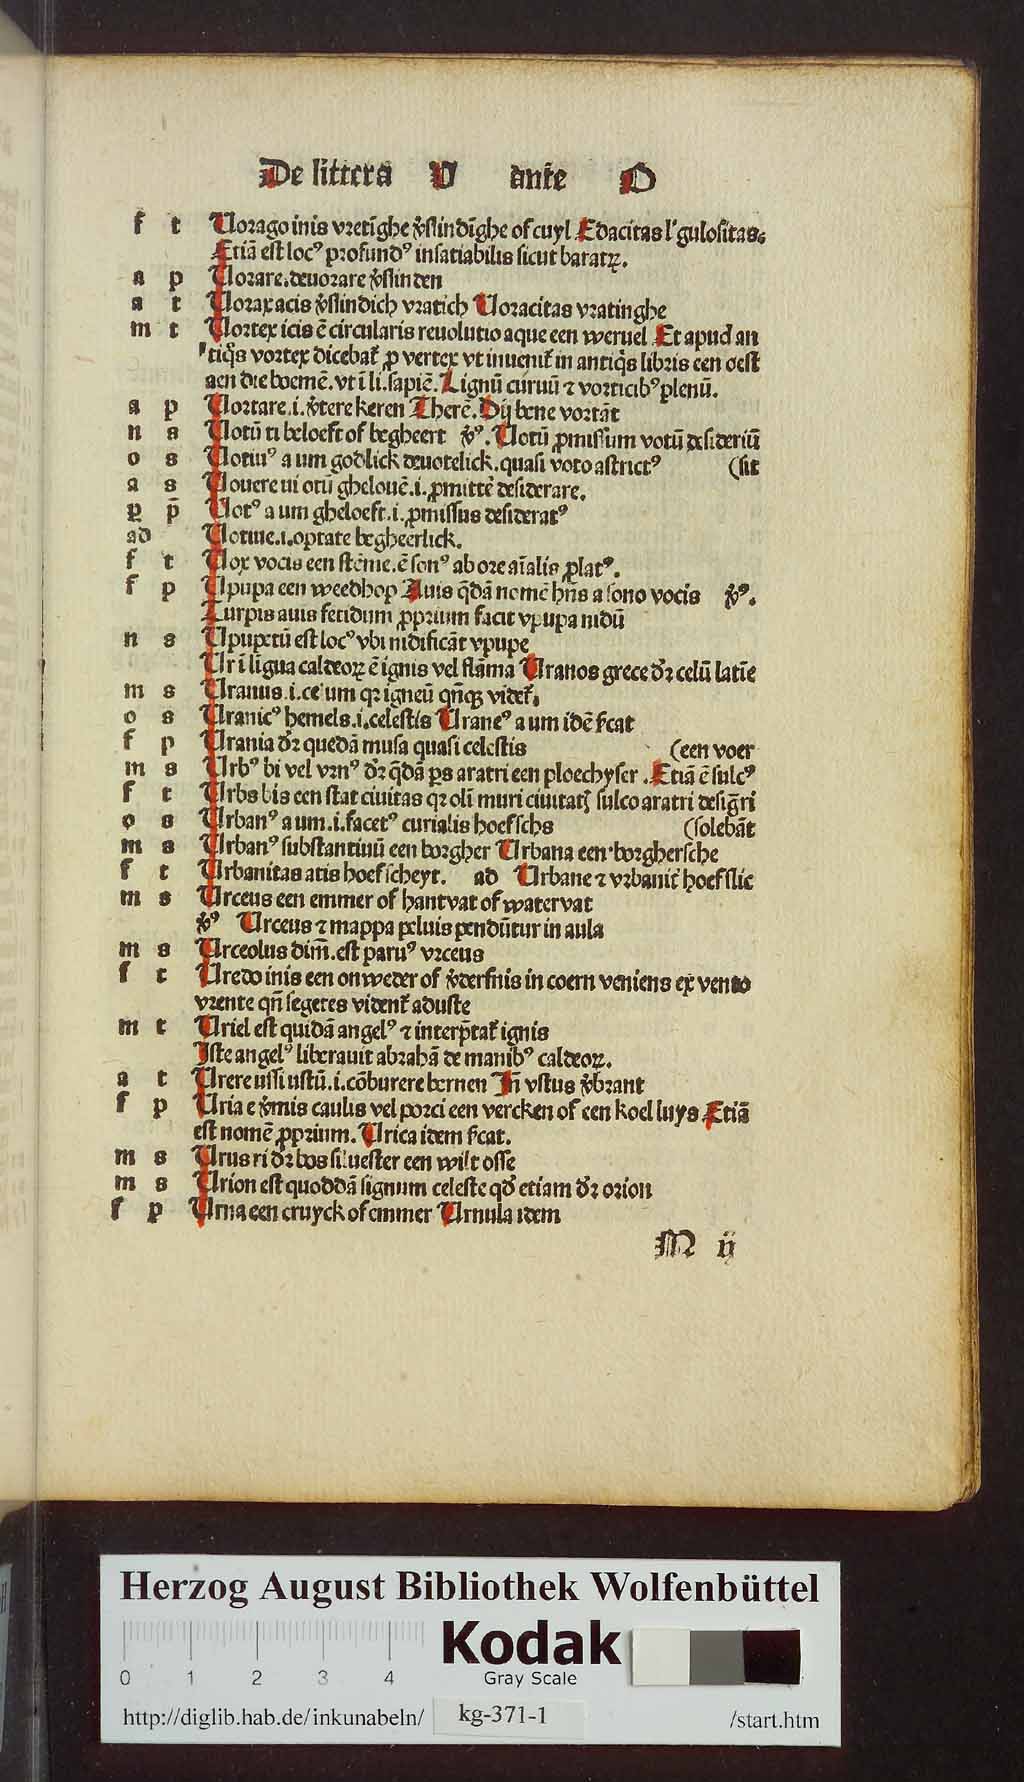 De littera V ante O
f t Uorago inis vretīghe v̉slindīghe of cuyl Edacitas lꝰ gulositas.
Etiā est locꝰ profundꝰ insatiabilis sicut baratꝝ.
a p Uorare.deuorare v̉slinden
a t Uorax acis v̉slindich vratich Uoracitas vratinghe
m t Uortex icis ē circularis reuolutio aque een weruel Et apud an
tiq̄s vortex dicebat̄ ꝓ vertex vt inuenit̄ in antiq̄s libris een oest
aen die boemē.vt ī li.sapiē.Lignū curuū ⁊ vorticibꝰ plenū.
a p Uortare.i.v̉tere keren Therē.Dij bene vortāt
n s Uotū ti beloeft of begheert v̉ꝰ.Uotū ꝓmissum votū desideriū
o s Uotiuꝰ a um godlick deuotelick.quasi voto astrictꝰ (sit
a s Uouere ui otū ghelouē.i.ꝓmittē desiderare.
ꝑ p̄ Uotꝰ a um gheloeft.i.ꝓmissus desideratꝰ
ad Uotiue.i.optate begheerlick.
f t Uox vocis een stēme.ē sonꝰ ab ore aīalis ꝓlatꝰ.
f p Upupa een weedhop Auis q̄dā nomē hn̄s a sono vocis v̉ꝰ.
Turpis auis fetidum ꝓprium facit vpupa nidū
n s Upupetū est locꝰ vbi nidificāt vpupe
Ur ī līgua caldeoꝝ ē ignis vel flāma Uranos grece dr̄ celū latīe
m s Uranus.i.celum qꝛ igneū qn̄qꝫ videt̄.
o s Uranicꝰ hemels.i.celestis Uraneꝰ a um idē sc̄at
f p Urania dr̄ quedā musa quasi celestis (een voer
m s Urbꝰ bi vel vrnꝰ dr̄ q̄dā ꝑs aratri een ploechyser.Etiā ē sulcꝰ
f t Urbs bis een stat ciuitas qꝛ oli muri ciuitatꝭ sulco aratri desig̅ri
o s Urbanꝰ a um.i.facetꝰ curialis hoefschs (solebāt
m s Urbanꝰ substantiuū een borgher Urbana een borghersche
f t Urbanitas atis hoefscheyt. ad Urbane ⁊ vrbanit̄ hoefslic
m s Urceus een emmer of hantvat of watervat
v̉ꝰ Urceus ⁊ mappa peluis pendūtur in aula
m s Urceolus dim̄.est paruꝰ vrceus
f t Uredo inis een onweder of v̉derfnis in coern veniens ex vento
vrente qn̄ segetes vident̄ aduste
m t Uriel est quidā angelꝰ ⁊ interp̄tat̄ ignis
Iste angelꝰ liberauit abrahā de manibꝰ caldeoꝝ.
a t Urere ussi ustū.i.cōburere bernen In̄ vstus v̉brant
f p Uria e v̉mis caulis vel porci een vercken of een koel luys Etiā
est nomē ꝓprium.Urica idem sc̄at.
m s Urus ri dr̄ bos siluester een wilt osse
m s Urion est quoddā signum celeste qd̄ etiam dr̄ orion
f p Urna een cruyck of emmer Urnula idem
M ij
Herzog August Bibliothek Wolfenbüttel
0 1 2 3 4
Kodak
Gray Scale
http://diglib.hab.de/inkunabeln/ kg-371-1 /start.htm